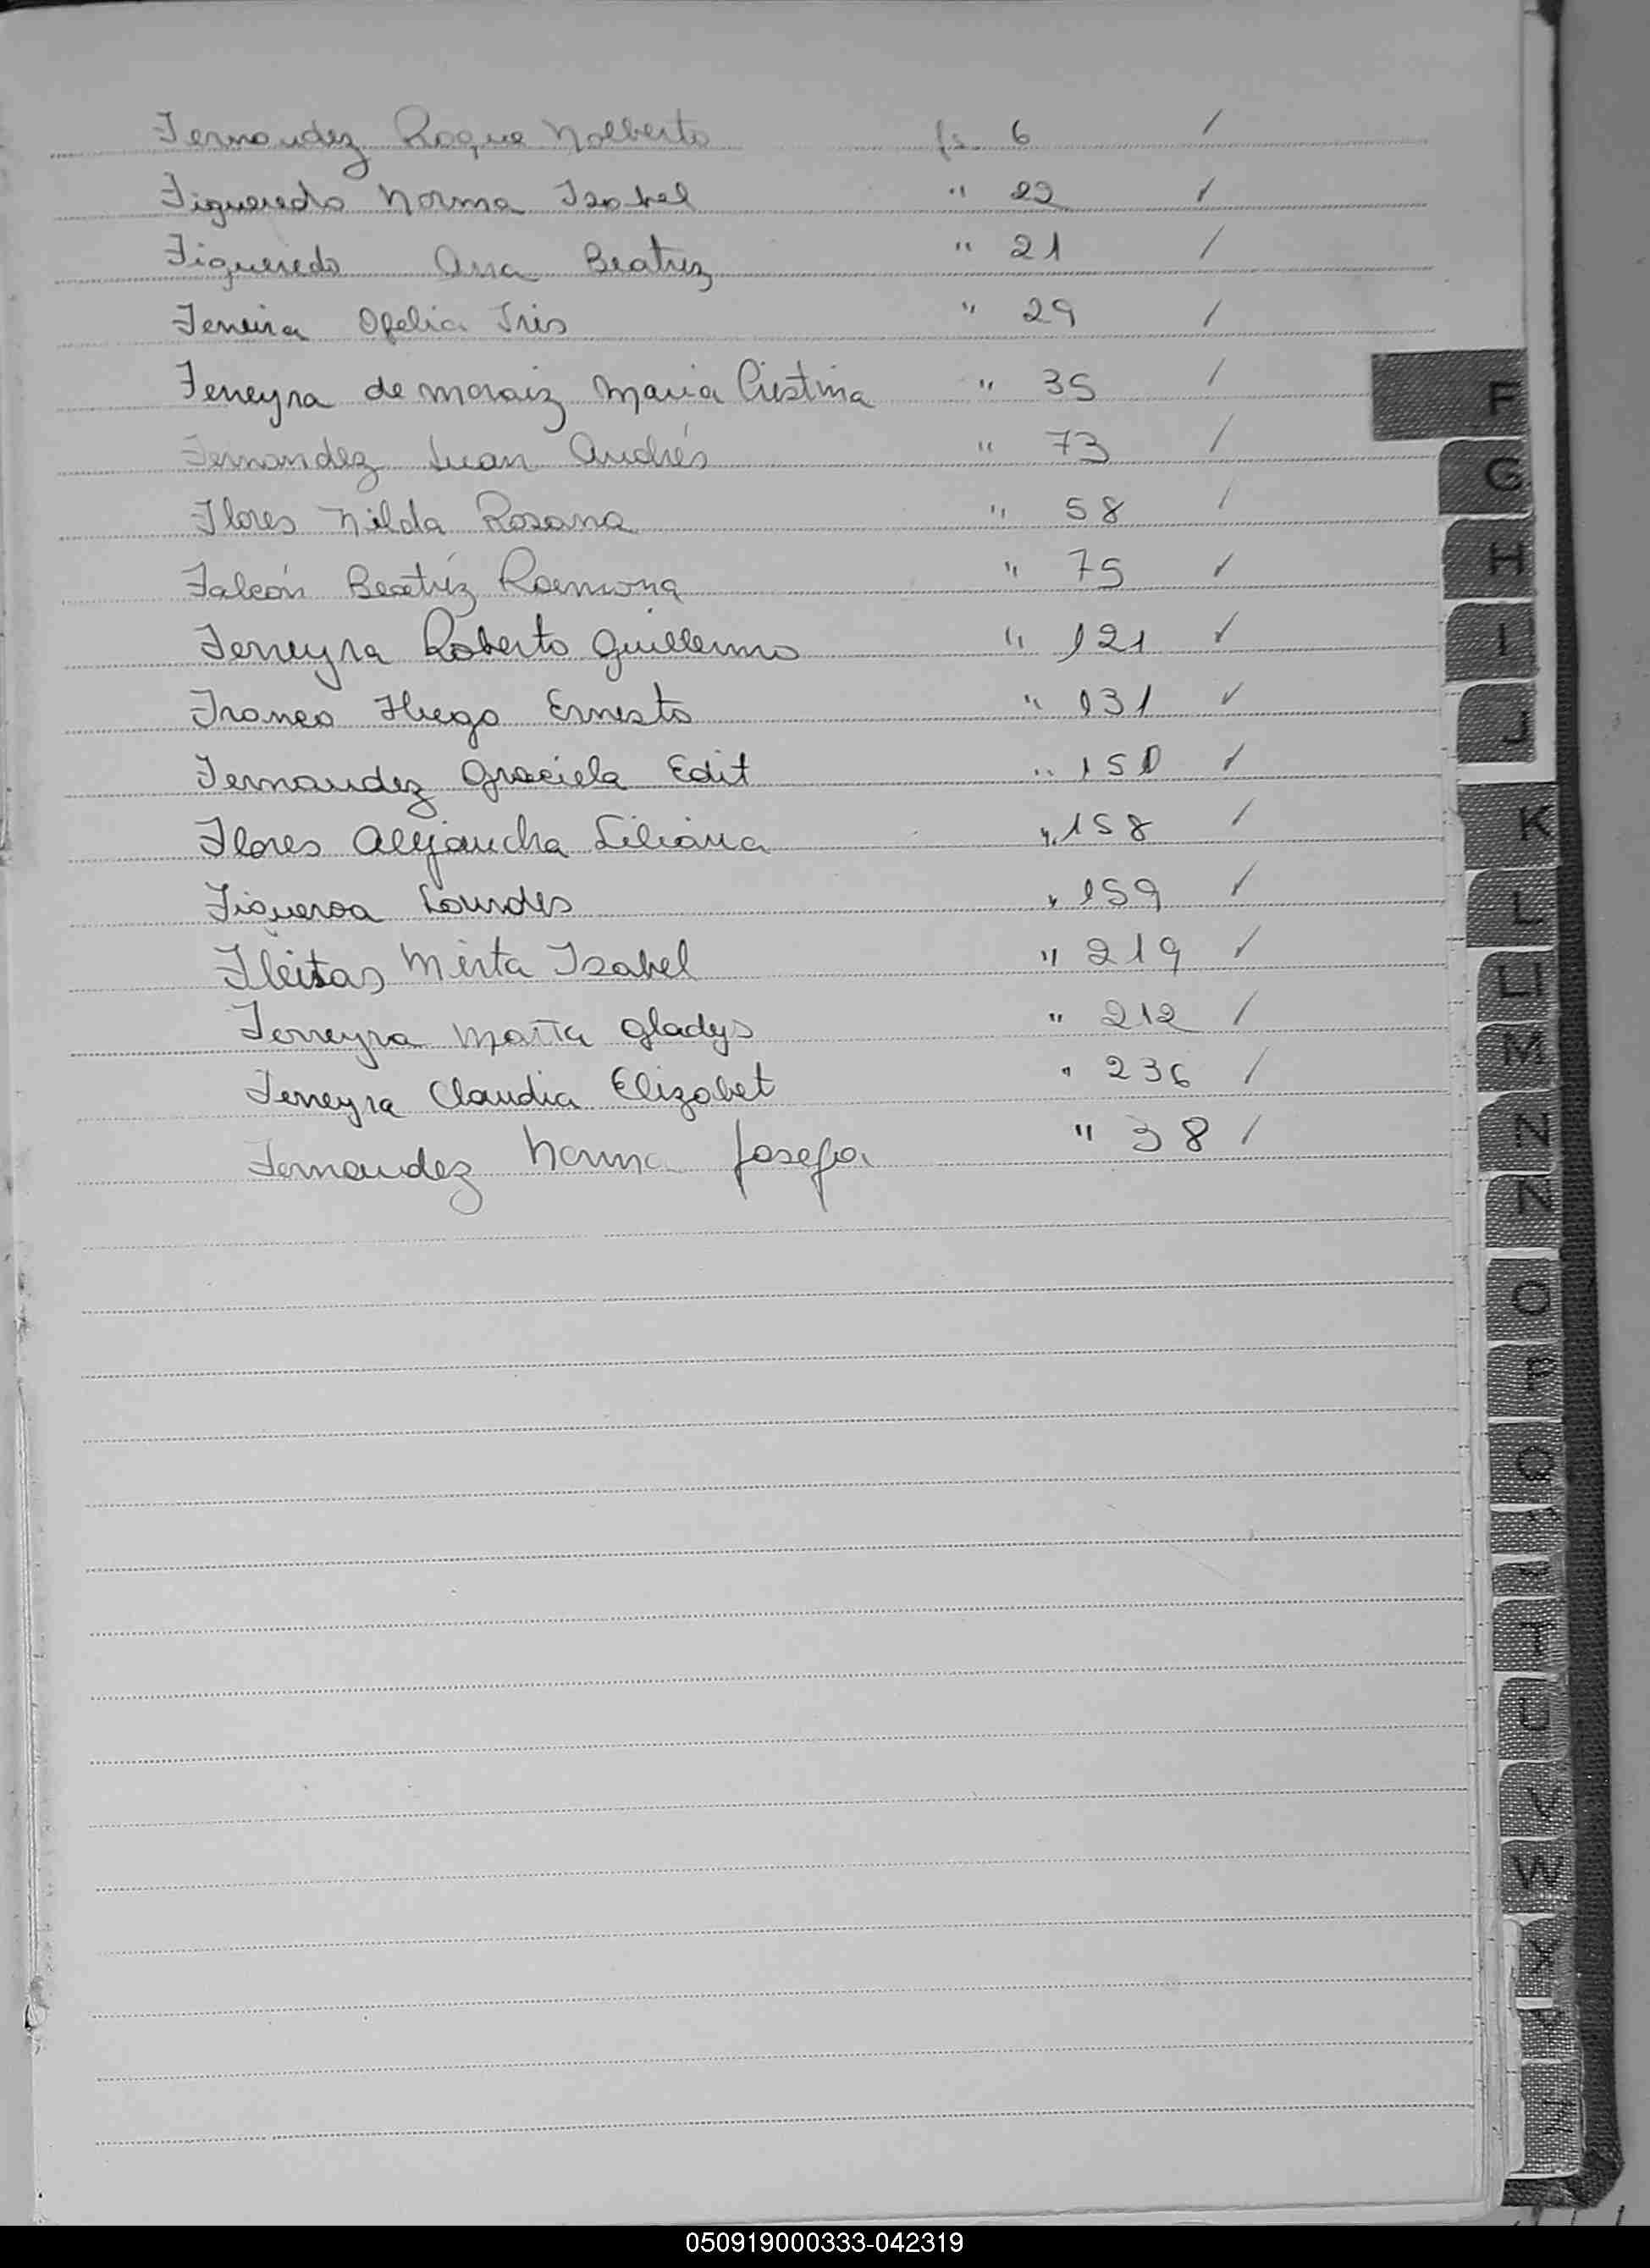 Fernandez Roque Nolberto fs. 6 /
Figueredo Norma Isabel " 22 /
Figueredo Ana Beatriz " 21 /
Ferreira Ofelia Iris " 29 /
Ferreyra de Moraiz Maria Cristina " 35 /
Fernandez Juan Andrés " 73 /
Flores Nilda Rosana " 58 /
Falcón Beatríz Ramona " 75 /
Ferreyra Roberto Guillermo " 121 /
Franco Hugo Ernesto " 131 /
Fernandez Graciela Edit " 151 /
Flores Alejandra Liliana " 158 /
Figueroa Lourdes " 159 /
Fleitas Mirta Isabel " 219 /
Ferreyra Marta Gladys " 212 /
Ferreyra Claudia Elizabet " 236 /
Fernandez Norma Josefa " 38 /
F
G
H
I
J
K
L
LL
M
N
Ñ
O
P
Q
T
U
V
W
X
Y
050919000333-042319